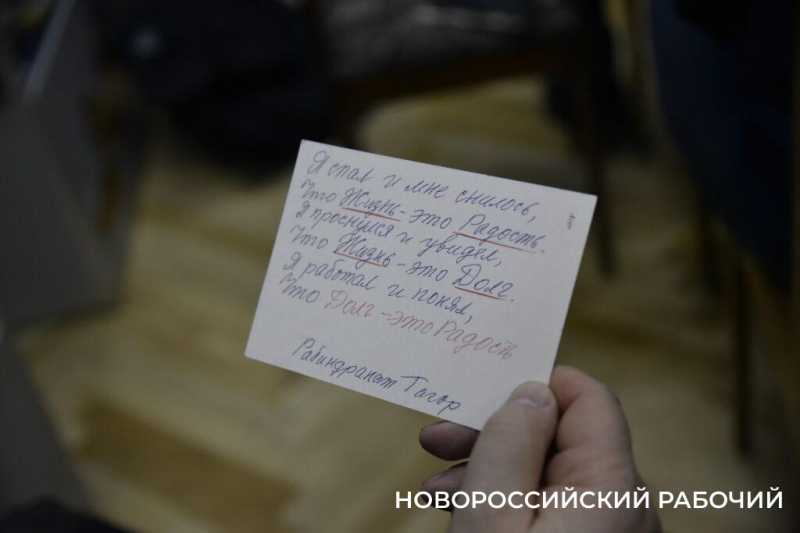 Я спал и мне снилось,
Что Жизнь - это Радость.
Я проснулся и увидел,
Что Жизнь - это Долг.
Я работал и понял,
Что Долг - это Радость
Рабиндранат Тагор
НОВОРОССИЙСКИЙ РАБОЧИЙ